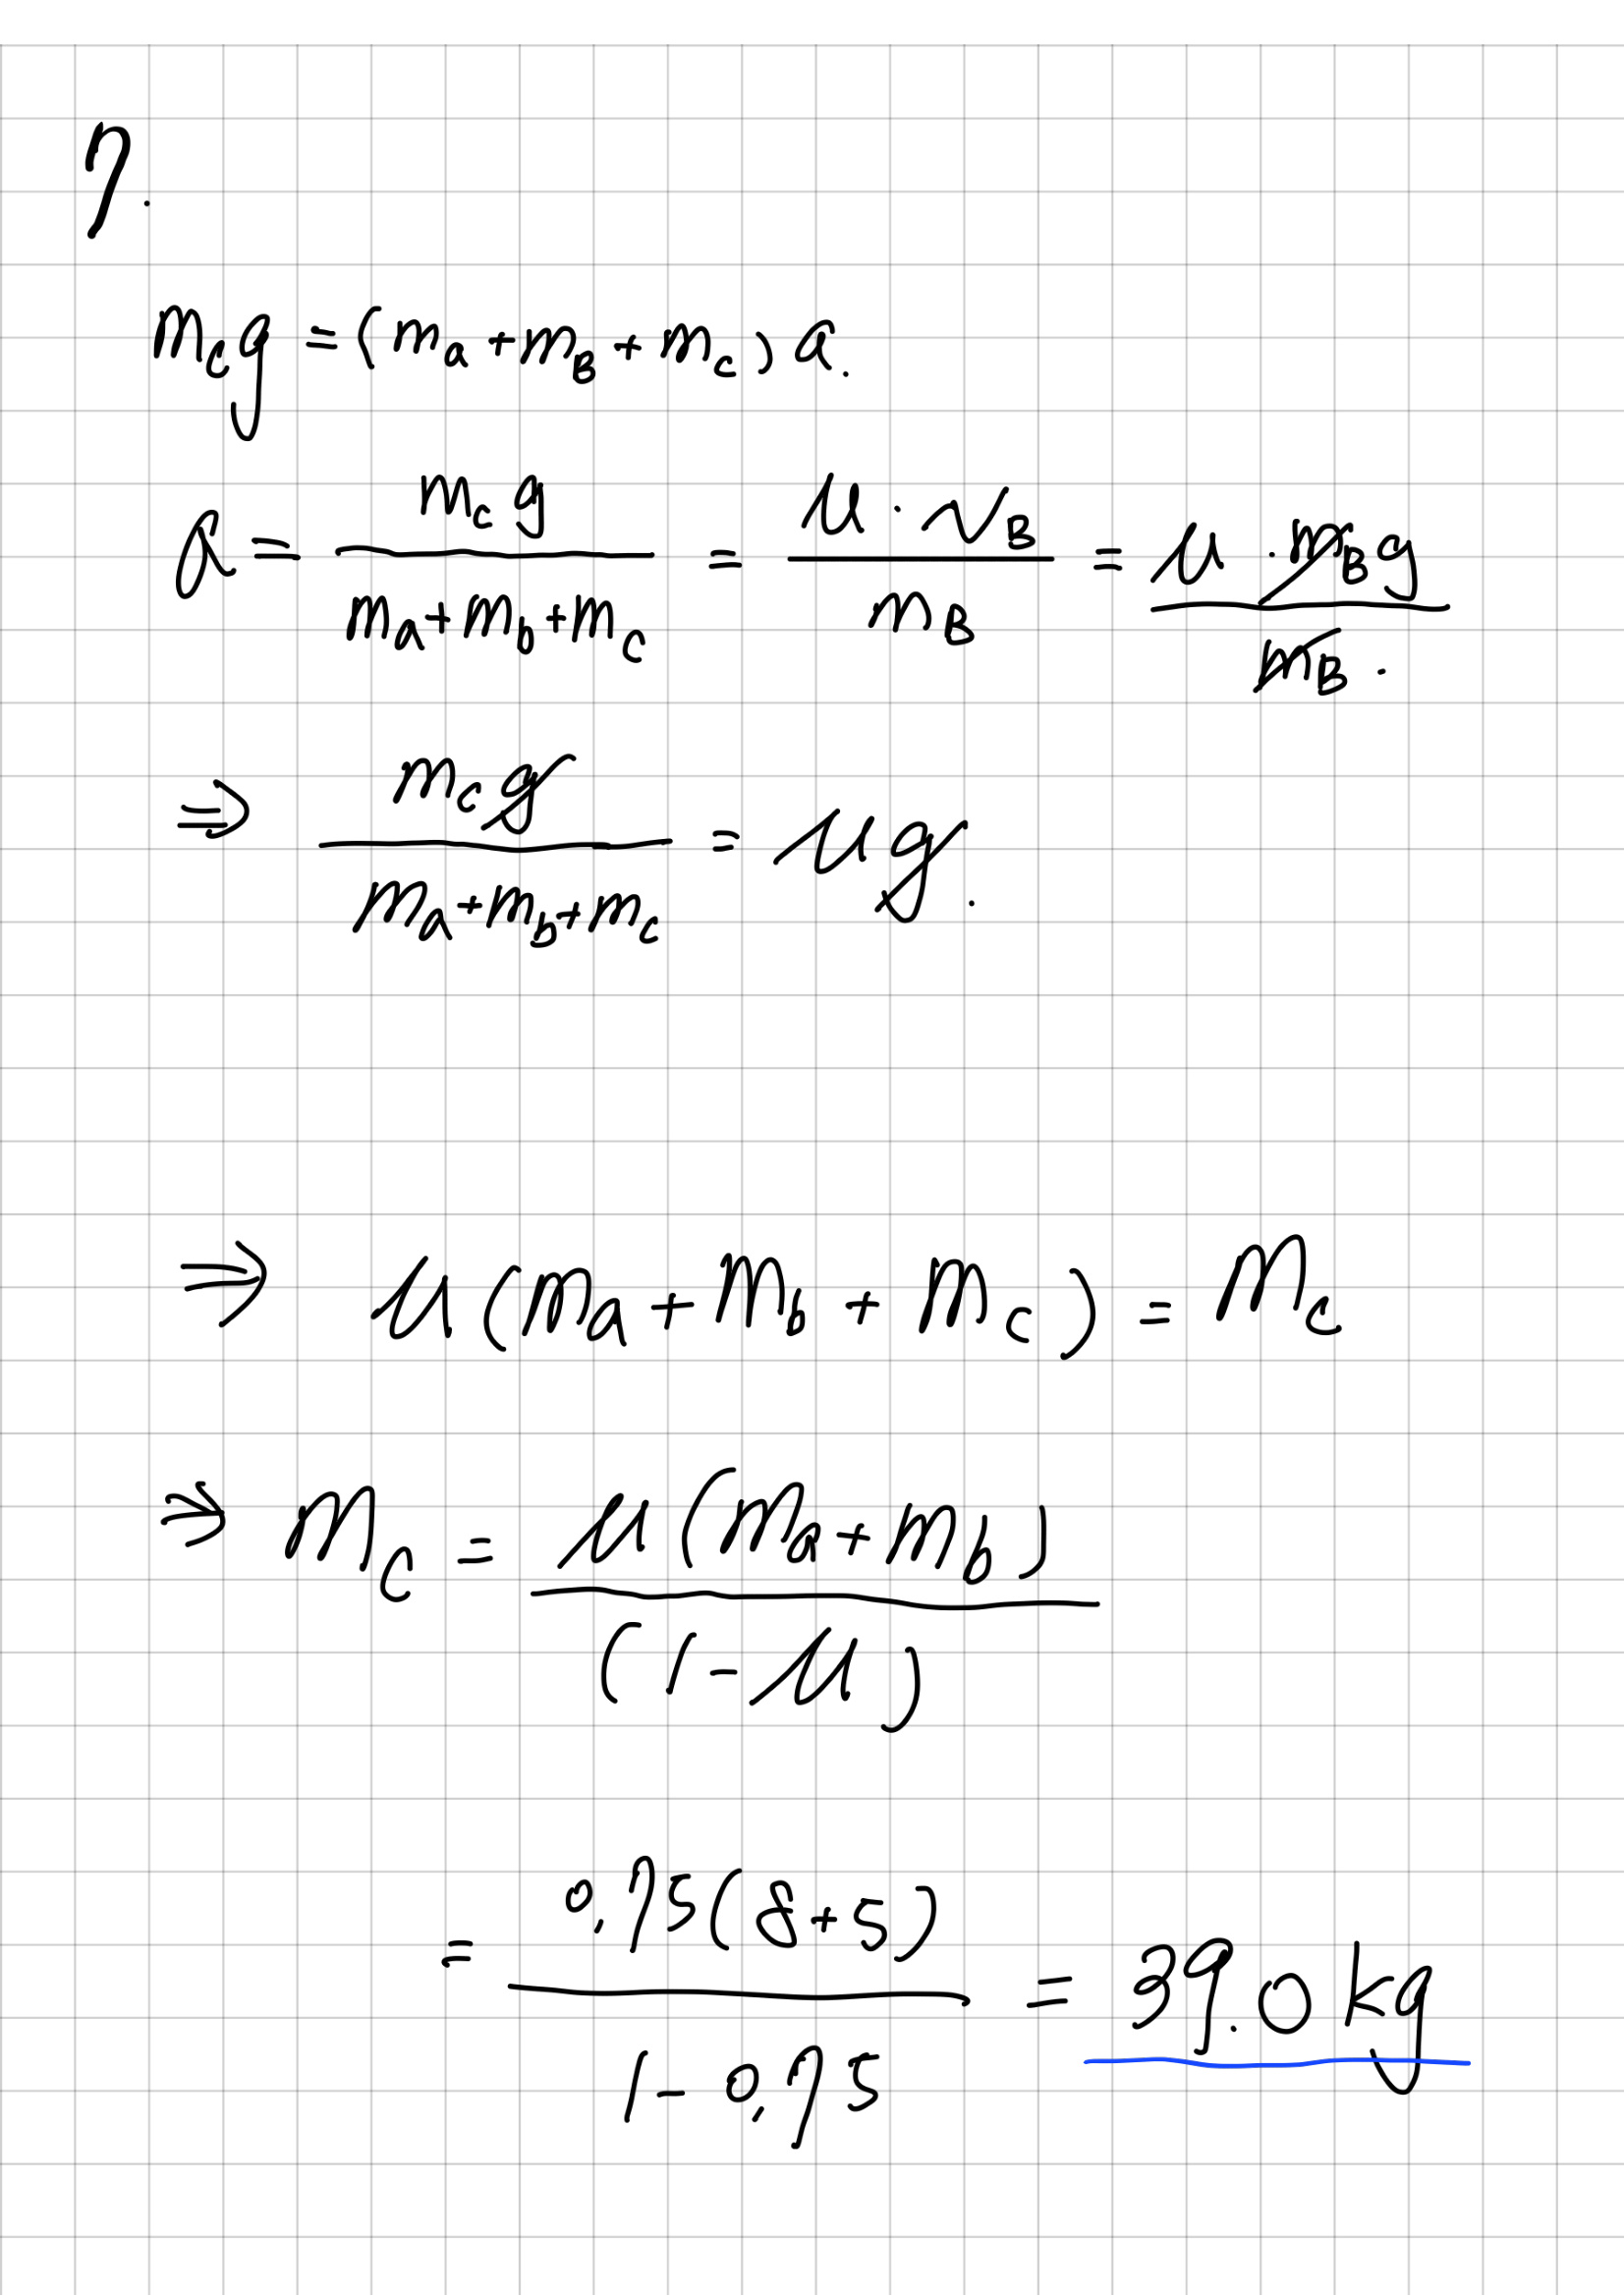 7.
m_c g = (m_a + m_B + m_c) a.
a = m_c g / (m_a + m_b + m_c) = μ · N_B / m_B = μ · m_B g / m_B .
⇒ m_c g / (m_a + m_b + m_c) = μ g .
⇒ μ (m_a + m_b + m_c) = m_c
⇒ m_c = μ (m_a + m_b) / (1 - μ)
= 0,75 (8 + 5) / 1 - 0,75 = 39.0 kg